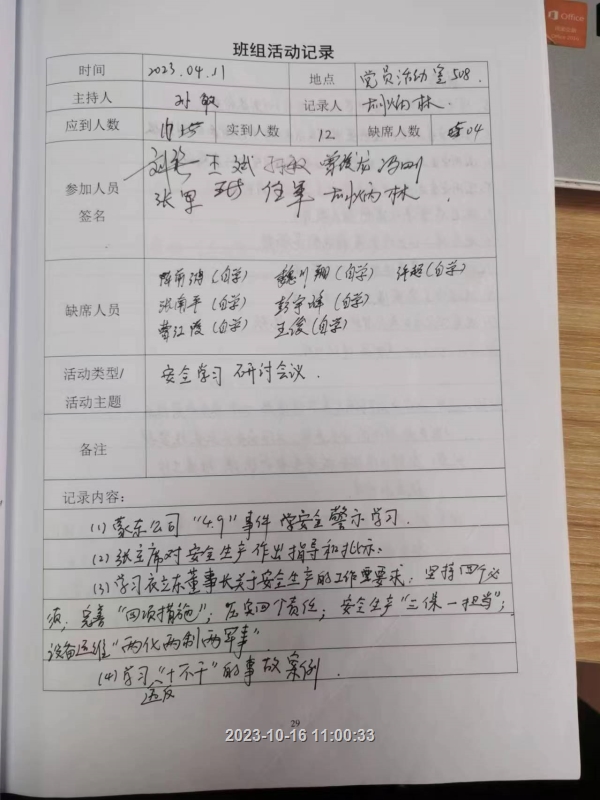 Office
班组活动记录
时间 2023.04.11 地点 党员活动室508.
主持人 孙敏 记录人 林.
应到人数 实到人数 12 缺席人数 04
参加人员 王斌 孙敏 冯刚
签名 张军 任军 林
(自学) 魏川翔(自学) 许超(自学)
缺席人员 张南平(自学) 彭宇峰(自学)
曹江霞(自学) 王俊(自学)
活动类型/ 安全学习 研讨会议.
活动主题
备注
记录内容:
(1) 蒙东公司"4.9"事件 学安全警示学习.
(2) 张主席对安全生产作出指导和批示.
(3) 学习衣立东董事长关于安全生产的工作重要求, 坚持四个必
须; 完善"四项措施"; 压实四个责任; 安全生产"三保一担当";
设备运维"两化两制两军事"
(4) 学习"十不干"的事故案例.
违反
29
2023-10-16 11:00:33